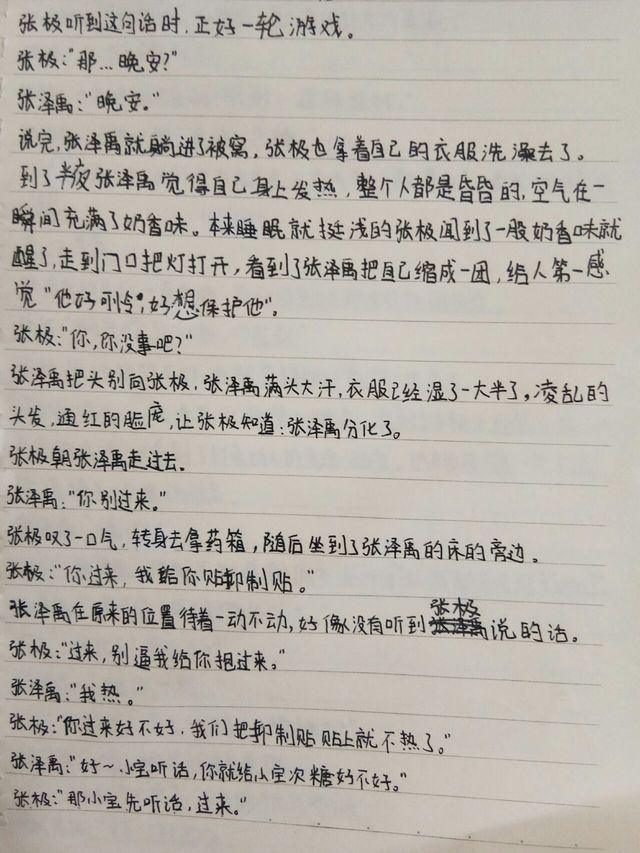 张极听到这句话时,正好一轮游戏。
张极:"那...晚安?"
张泽禹:"晚安。"
说完,张泽禹就躺进了被窝,张极也拿着自己的衣服洗澡去了。
到了半夜张泽禹觉得自己身上发热,整个人都是昏昏的,空气在一
瞬间充满了奶香味。本来睡眠就挺浅的张极闻到了一股奶香味就
醒了,走到门口把灯打开,看到了张泽禹把自己缩成一团,给人第一感
觉"他好可怜,好想保护他"。
张极:"你,你没事吧?"
张泽禹把头别向张极,张泽禹满头大汗,衣服已经湿了一大半了,凌乱的
头发,通红的脸庞,让张极知道:张泽禹分化了。
张极朝张泽禹走过去。
张泽禹:"你别过来。"
张极叹了一口气,转身去拿药箱,随后坐到了张泽禹的床的旁边。
张极:"你过来,我给你贴抑制贴。"
张泽禹在原来的位置待着一动不动,好像没有听到张极说的话。
张极:"过来,别逼我给你抱过来。"
张泽禹:"我热。"
张极:"你过来好不好,我们把抑制贴贴上就不热了。"
张泽禹:"好~小宝听话,你就给小宝次糖好不好。"
张极:"那小宝先听话,过来。"